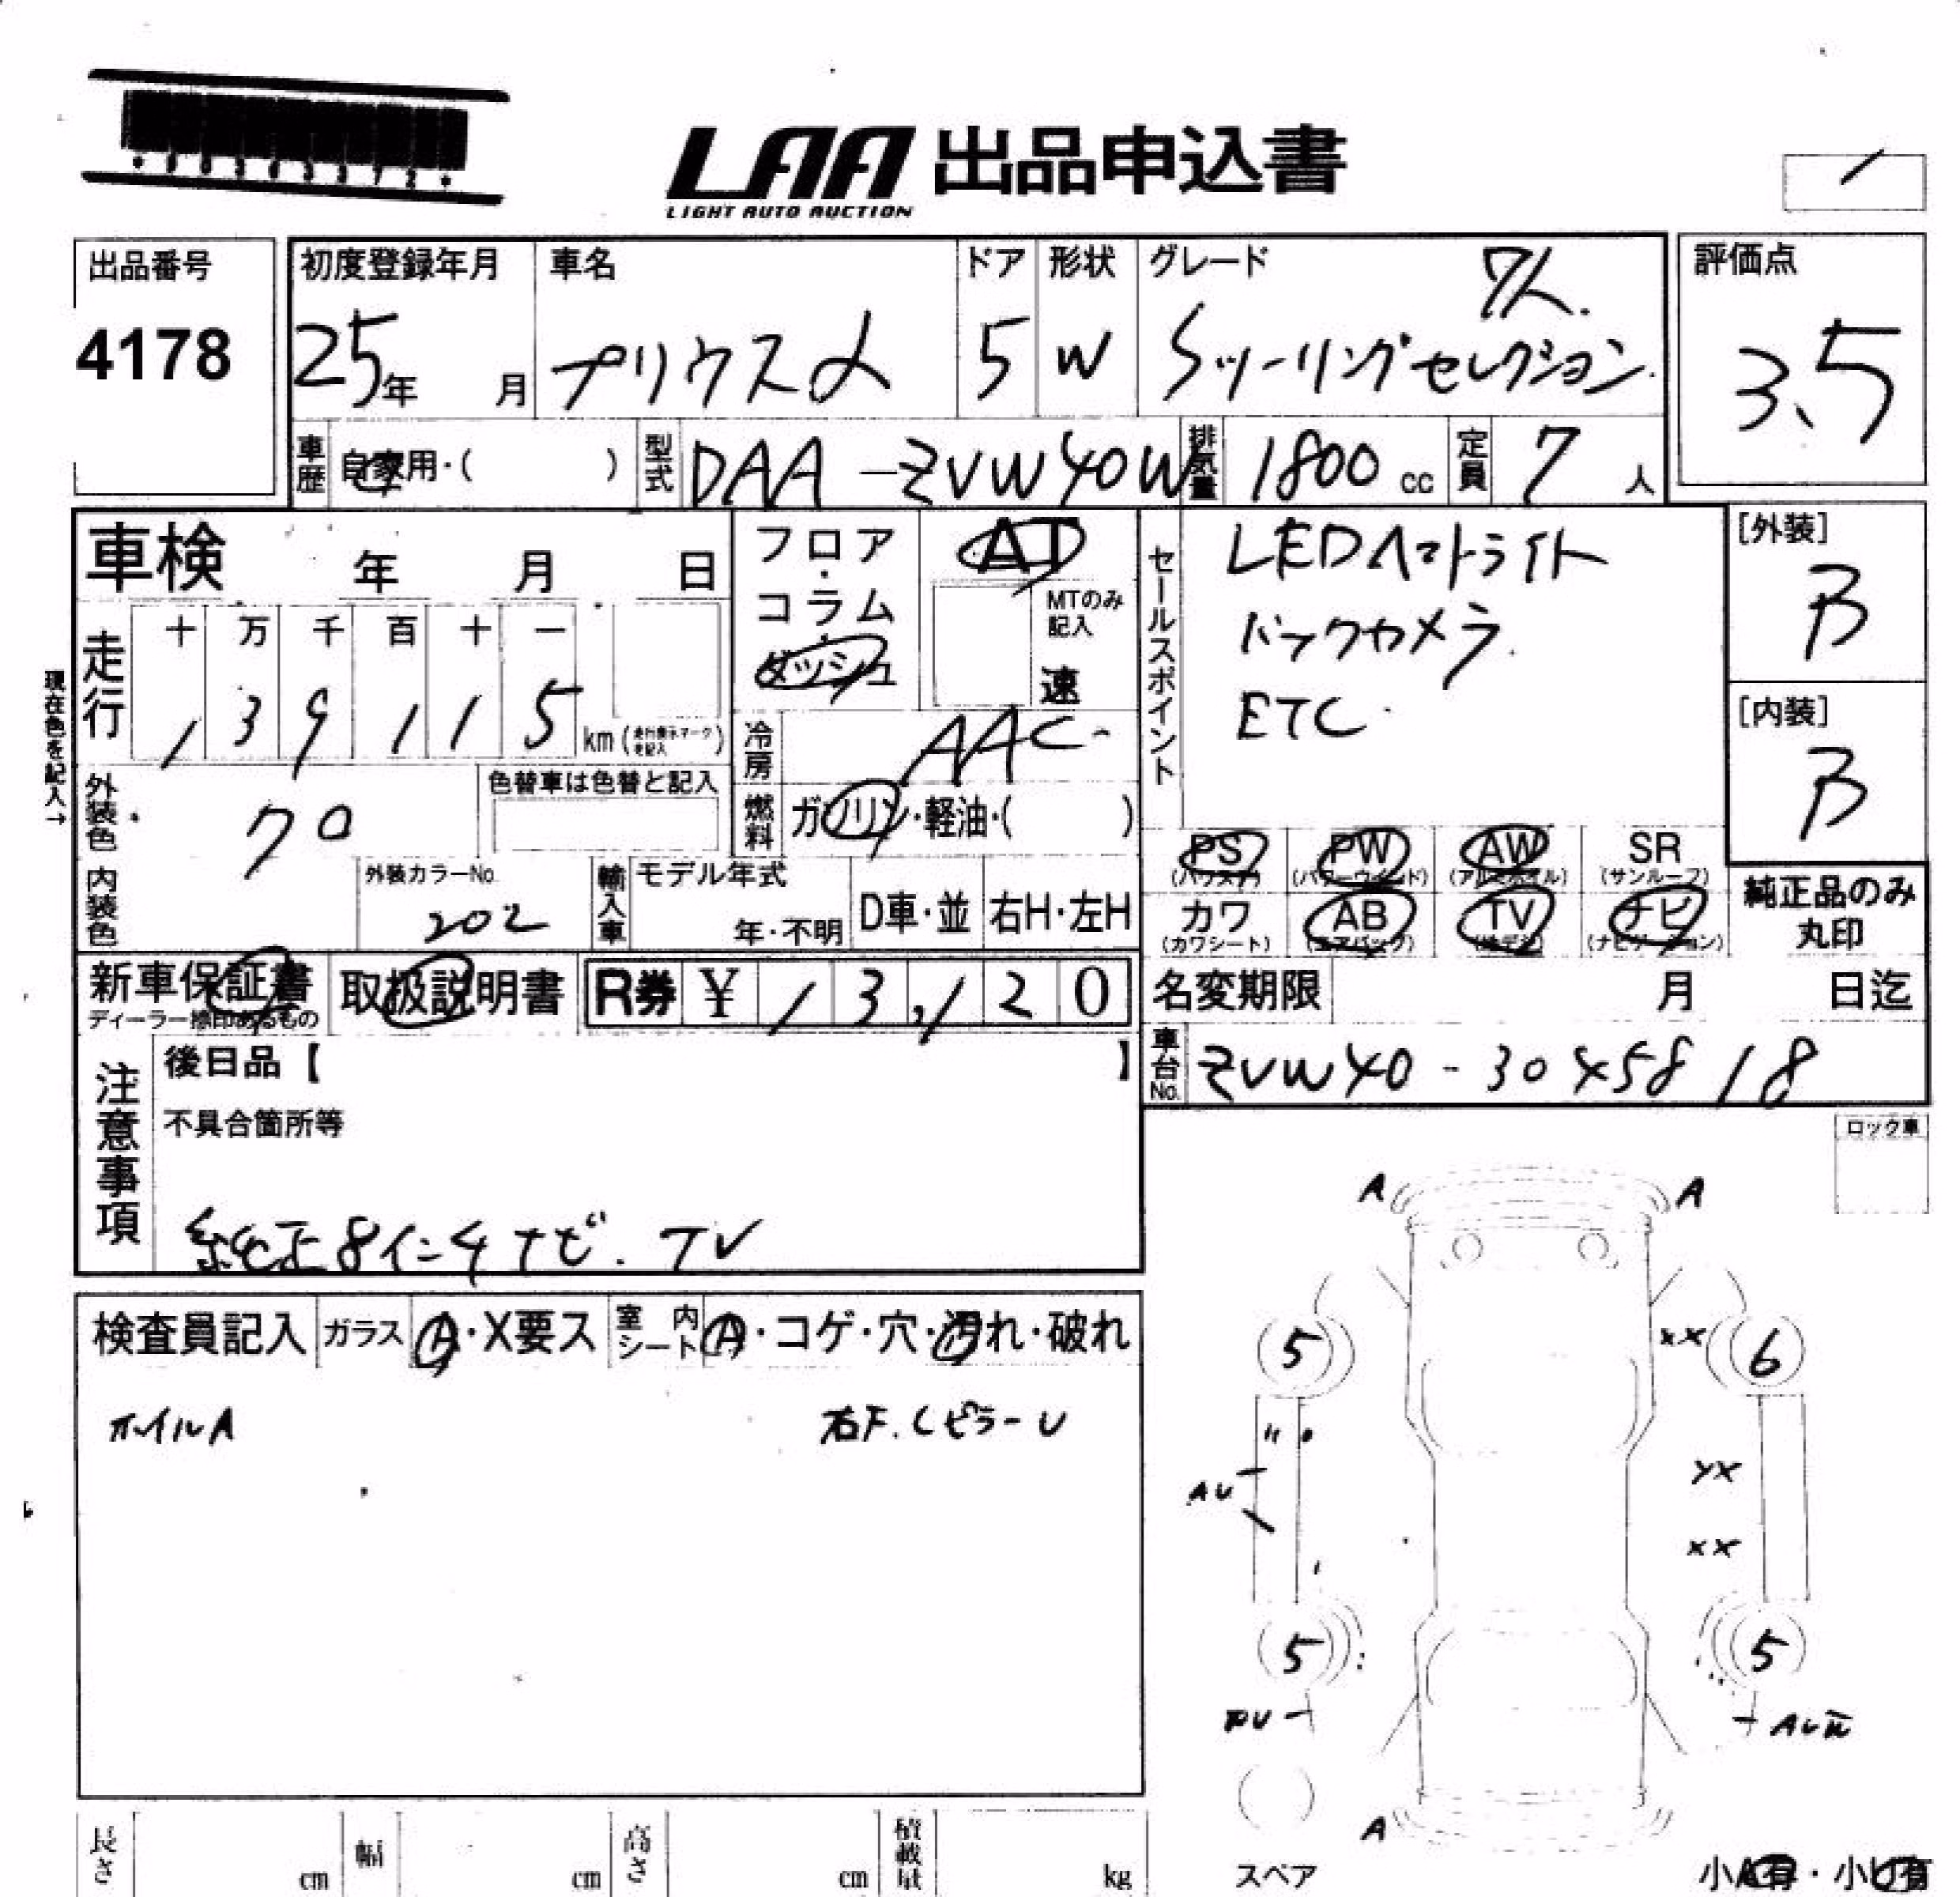 LAA 出品申込書
LIGHT AUTO AUCTION
出品番号
4178
初度登録年月
25年 月
車名
プリウスα
ドア
5
形状
W
グレード
7人.
Sツーリングセレクション.
評価点
3.5
車歴 自家用・( )
型式 DAA-ZVW40W
排気量 1800 cc
定員 7 人
車検 年 月 日
フロア・コラム・ダッシュ
AT
MTのみ記入
速
セールスポイント
LEDヘットライト
バックカメラ.
ETC.
[外装]
B
[内装]
B
現在色を記入→
走行
十 万 千 百 十 一
1 3 9 1 1 5 km (走行表示マークを記入)
冷房 AAC
外装色 クロ
色替車は色替と記入
燃料 ガソリン・軽油・( )
内装色
外装カラーNo.
202
輸入車
モデル年式
年・不明
D車・並
右H・左H
PS (パワステ)
PW (パワーウインド)
AW (アルミホイル)
SR (サンルーフ)
カワ (カワシート)
AB (エアバッグ)
TV (地デジ)
ナビ (ナビゲーション)
純正品のみ
丸印
新車保証書
ディーラー捺印あるもの
取扱説明書
R券 ¥ 13,120
名変期限 月 日迄
車台No. ZVW40-3045818
注意事項
後日品【 】
不具合箇所等
純正8インチナビ. TV
ロック車
検査員記入
ガラス A・X要ス
室内シート A・コゲ・穴・汚れ・破れ
ホイルA
右F.Cピラー U
A A
5 XX 6
AU
YX
XX
5 5
AU
A
スペア
小A有・小U有
長さ cm
幅 cm
高さ cm
積載量 kg